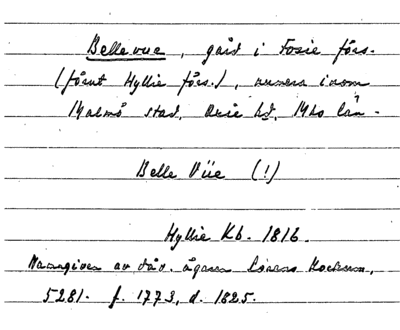 Bellevue, gård i Fosie förs.
(förut Hyllie förs.), numera inom
Malmö stad, Oxie hd, Mlo län.
Belle Vüe (!)
Hyllie Kb. 1816.
Namngiven av dåv. ägaren Lorens Kockum,
5281. f. 1773, d. 1825.